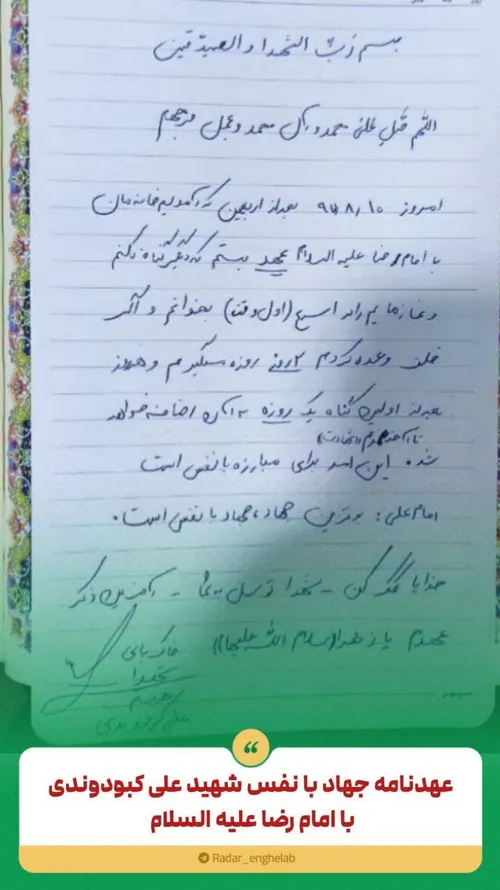 بسم رب الشهدا والصدیقین
اللهم صل علی محمد و آل محمد و عجل فرجهم
امروز ۹۷/۸/۱۰ بعد از اربعین که آمدیم خانه مان
با امام رضا علیه السلام عهد بستم که دیگر گناه نکنم
و نمازهایم را سریع (اول وقت) بخوانم و اگر
خلف وعده کردم ۲ روز روزه میگیرم و هنوز
بعد از اولین گناه یک روزه به آن اضافه خواهد
تا آخر عمرم (شهادت)
شد. این امر برای مبارزه با نفس است
امام علی: برترین جهاد، جهاد با نفس است.
خدایا کمک کن - شهدا توسل به شما - آخرین ذکر
عهدم یا زهرا (سلام الله علیها) خاک پای
شهدا
علی کبودوندی
عهدنامه جهاد با نفس شهید علی کبودوندی
با امام رضا علیه السلام
Radar_enghelab